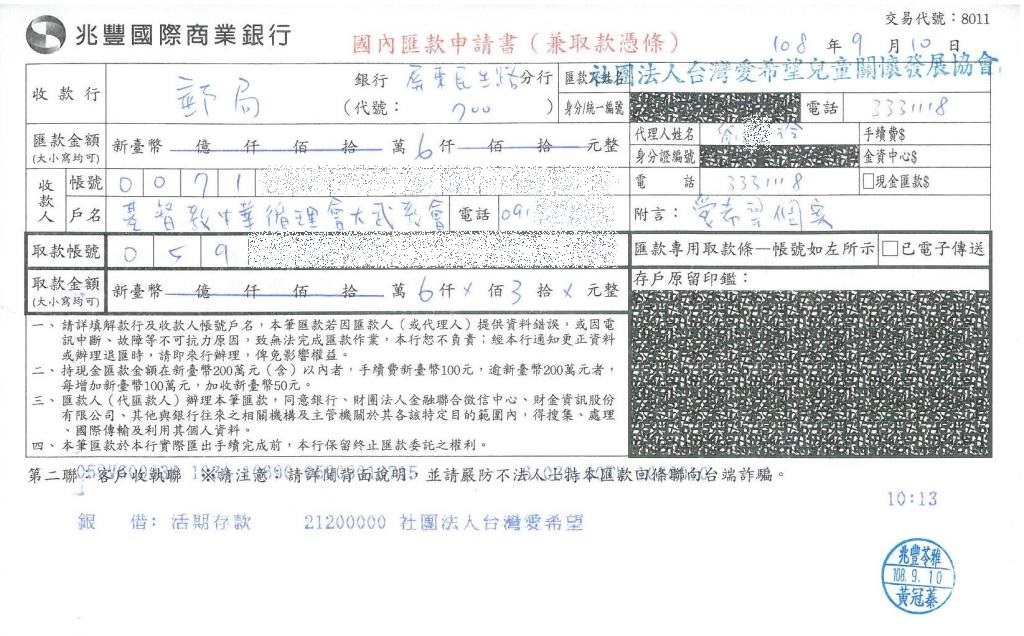 交易代號：8011
兆豐國際商業銀行
國內匯款申請書（兼取款憑條）
108 年 9 月 10 日
收款行 郵局 銀行 屏東民生路 分行
（代號： 700 ）
匯款人姓名 社團法人台灣愛希望兒童關懷發展協會
身分/統一編號 電話 3331118
匯款金額 新臺幣 億 仟 佰 拾 萬 6 仟 佰 拾 元整
(大小寫均可)
代理人姓名 手續費$
身分證編號 金資中心$
收款人 帳號 0071
電話 3331118 現金匯款$
戶名 基督教中華循理會大武教會 電話 091
附言： 愛希望個案
取款帳號 059
匯款專用取款條—帳號如左所示 已電子傳送
取款金額 新臺幣 億 仟 佰 拾 萬 6 仟 × 佰 3 拾 × 元整
(大小寫均可)
存戶原留印鑑：
一、請詳填解款行及收款人帳號戶名，本筆匯款若因匯款人（或代理人）提供資料錯誤，或因電
訊中斷、故障等不可抗力原因，致無法完成匯款作業，本行恕不負責；經本行通知更正資料
或辦理退匯時，請即來行辦理，俾免影響權益。
二、持現金匯款金額在新臺幣200萬元（含）以內者，手續費新臺幣100元，逾新臺幣200萬元者，
每增加新臺幣100萬元，加收新臺幣50元。
三、匯款人（代匯款人）辦理本筆匯款，同意銀行、財團法人金融聯合徵信中心、財金資訊股份
有限公司、其他與銀行往來之相關機構及主管機關於其各該特定目的範圍內，得搜集、處理
、國際傳輸及利用其個人資料。
四、本筆匯款於本行實際匯出手續完成前，本行保留終止匯款委託之權利。
第二聯：客戶收執聯 ※請注意：請詳閱背面說明，並請嚴防不法人士持本匯款回條聯向台端詐騙。
10:13
銀 借: 活期存款 21200000 社團法人台灣愛希望
兆豐苓雅
108. 9. 10
黃冠蓁